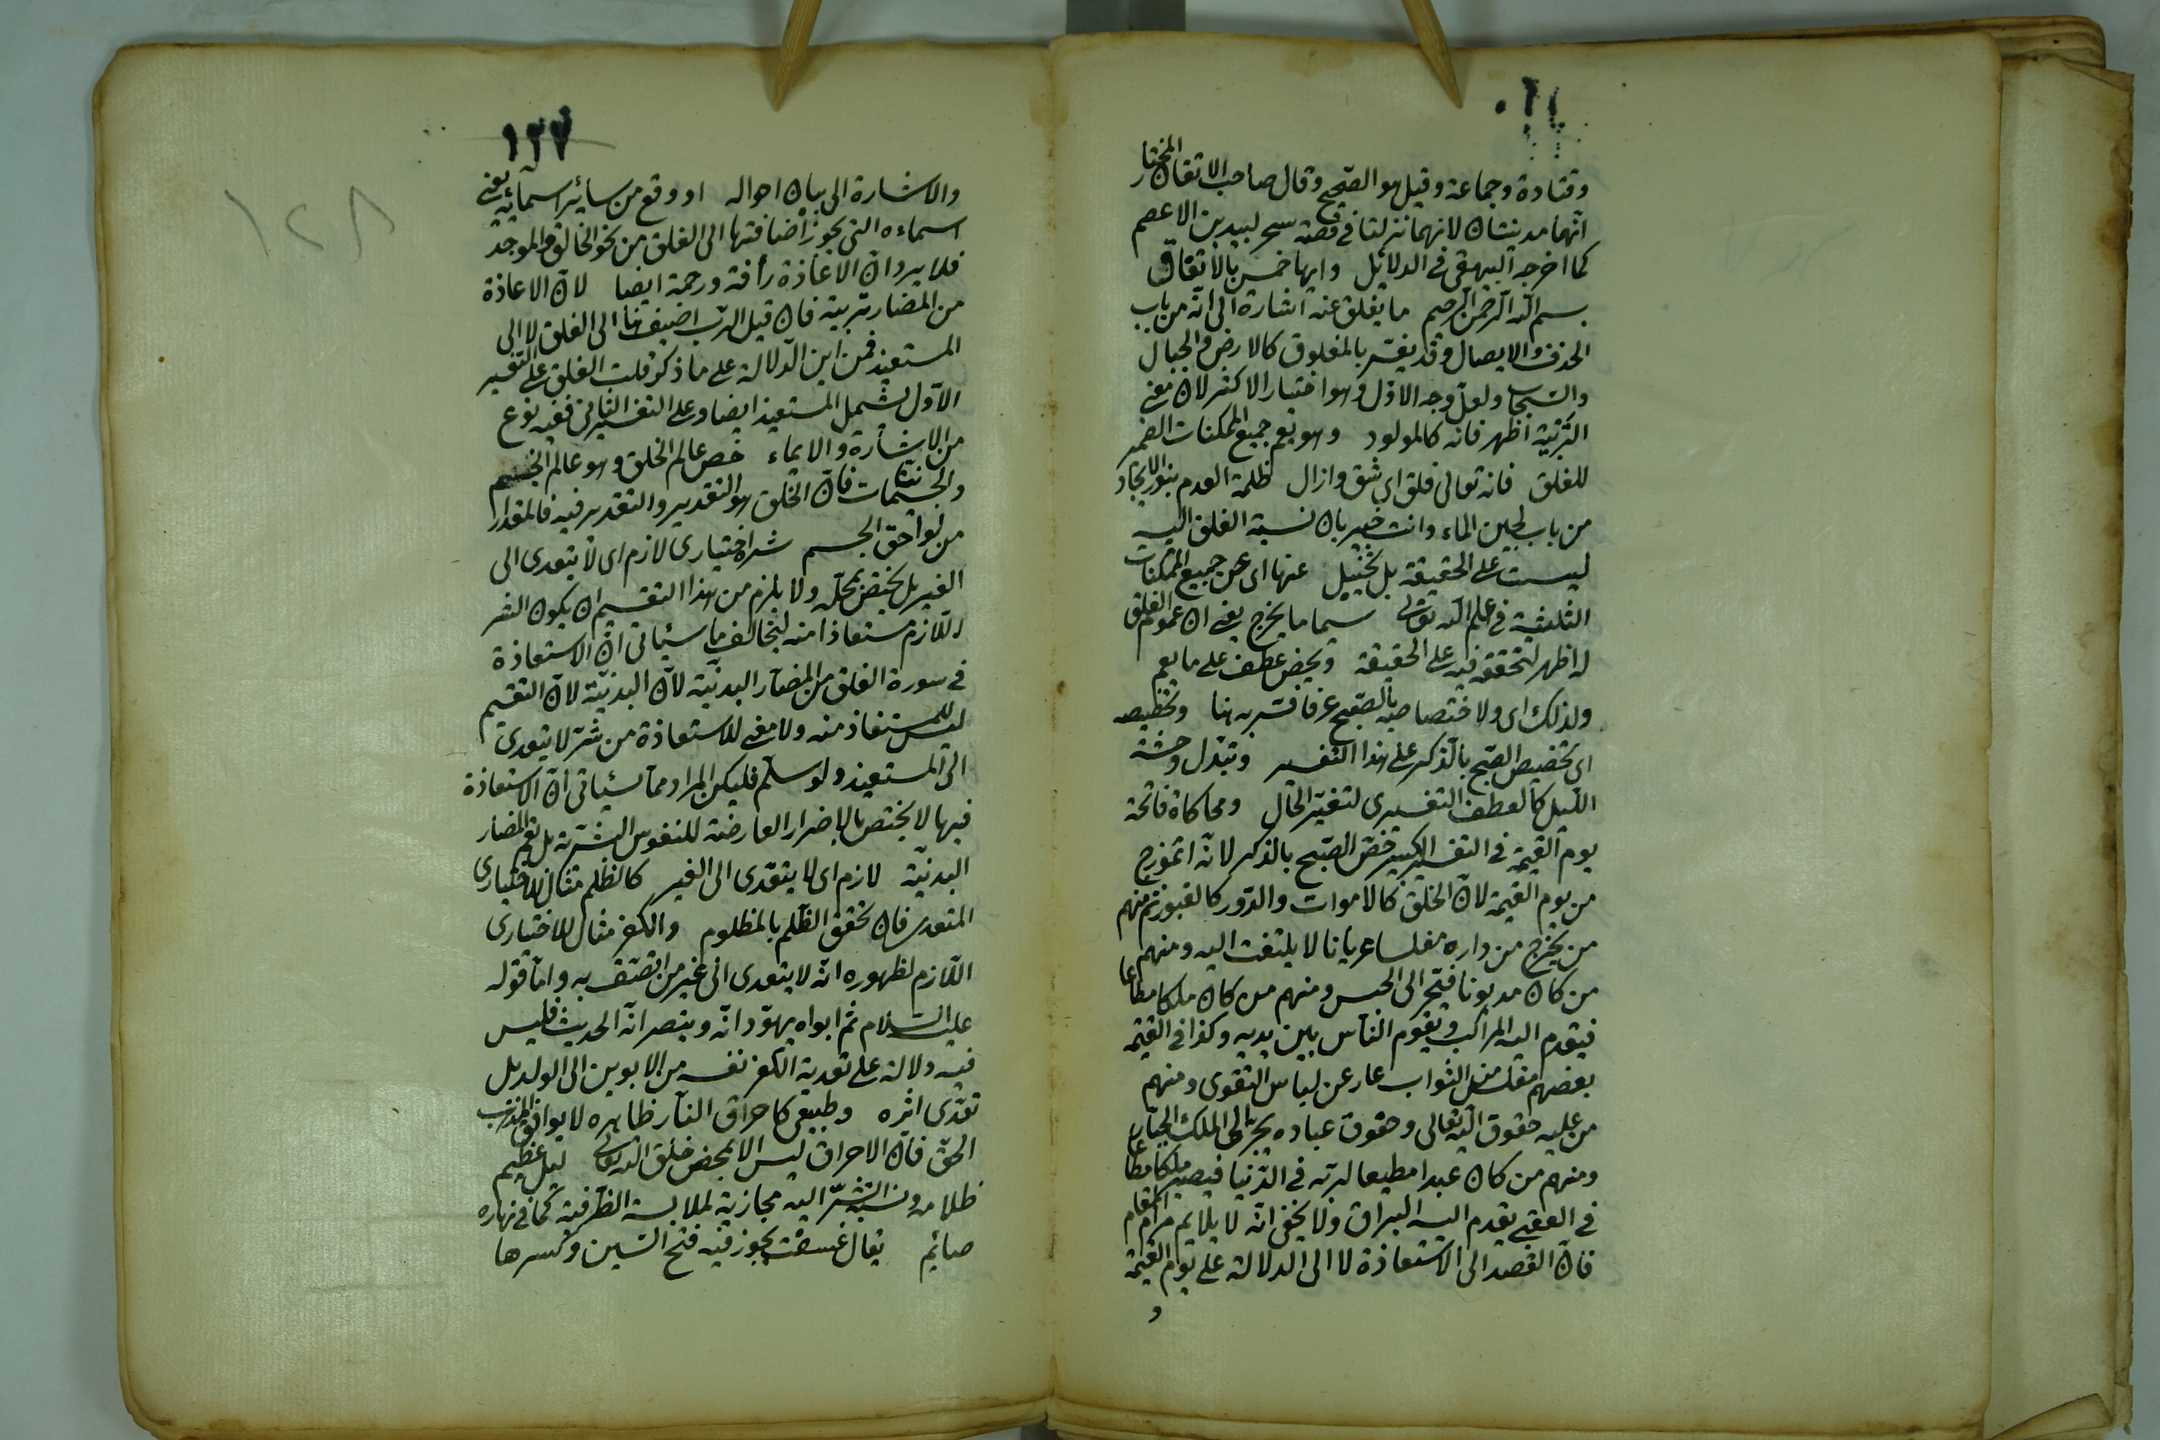 وقتادة وجماعة وقيل هو الصحيح وقال صاحب الاتقان المختار
انهما مدنيتان لانهما نزلتا في قصة سحر لبيد بن الاعصم
كما اخرجه البيهقي في الدلائل وايها خمس بالاتفاق
بسم الله الرحمن الرحيم ما يفلق عنه اشارة الى انه من باب
الحذف والايصال وقد يفسر بالمفلوق كالارض والجبال
والسحاب ولعل وجه الاول وهو اختيار الاكثر لان معنى
التربية اظهر فانه كالمولود وهو يعم جميع الممكنات الضمير
للفلق فانه تعالى فلق اي شق وازال ظلمة العدم بنور الايجاد
من باب لجين الماء وانت خبير بان نسبة الفلق اليه
ليست على الحقيقة بل تخييل عنها اى عن جميع الممكنات
الثابتة في علم الله تعالى سيما ما يخرج يعنى ان عموم الفلق
له اظهر لتحققه فيه على الحقيقة ويخص عطف على ما يعم
ولذلك اى ولاختصاصه بالصبح عرفا فسر به هنا وتخصيصه
اى تخصيص الصبح بالذكر على هذا التفسير وتبدل وحشة
الليل كالعطف التفسيرى لتغير الحال ومحاكاة فاتحة
يوم القيمة في التفسير الكبير خص الصبح بالذكر لانه انموذج
من يوم القيمة لان الخلق كالاموات والدور كالقبور ثم منهم
من يخرج من داره مفلسا عريانا لا يلتفت اليه ومنهم
من كان مديونا فيجر الى الحبس ومنهم من كان ملكا مطاعا
فيقدم اليه المراكب ويقوم الناس بين يديه وكذا في القيمة
بعضهم مفلس من الثواب عار عن لباس التقوى ومنهم
من عليه حقوق الله تعالى وحقوق عباده يجر الى الملك الجبار
ومنهم من كان عبدا مطيعا لربه في الدنيا فيصير ملكا مطاعا
في العقبى يقدم اليه البراق ولا يخفى انه لا يلايم مرام المقام
فان القصد الى الاستعاذة لا الى الدلالة على يوم القيمة
و
١٢٧
١٢٨
والاشارة الى بيان احواله اوقع من سائر اسمائه يعنى
اسماءه التى يجوز اضافتها الى الفلق من نحو الخالق والموجد
فلا يرد ان الاعاذة رأفة ورحمة ايضا لان الاعاذة
من المضار تربية فان قيل الرب اضيف هنا الى الفلق لا الى
المستعيذ فمن اين الدلالة على ما ذكر قلت الفلق على التفسير
الاول يشمل المستعيذ ايضا وعلى التفسير الثانى ففيه نوع
من الاشارة والايماء خص عالم الخلق وهو عالم الجسم
والجسمانيات فان الخلق هو التقدير والتقدير فيه فالمقدار
من لواحق الجسم شره اختيارى لازم اى لا يتعدى الى
الغير بل يختص بمحله ولا يلزم من هذا التقسيم ان يكون الشر
اللازم مستعاذا منه ليخالف ما سيأتى ان الاستعاذة
في سورة الفلق من المضار البدنية لان البدنية لان التقسيم
ليس للمستعاذ منه ولا معنى للاستعاذة من شر لا يتعدى
الى المستعيذ ولو سلم فليكن المراد مما سيأتى ان الاستعاذة
فيها لا يختص بالاضرار العارضة للنفوس البشرية بل يعم المضار
البدنية لازم اى لا يتعدى الى الغير كالظلم مثال للاختيارى
المتعدى فان تحقق الظلم بالمظلوم والكفر مثال للاختيارى
اللازم لظهوره انه لا يتعدى الى غير من اتصف به واما قوله
عليه السلام ثم ابواه يهودانه وينصرانه الحديث فليس
فيه دلالة على تعدية الكفر نفسه من الابوين الى الولد بل
تعدى اثره وطبيعى كاحراق النار ظاهره لا يوافق المذهب
الحق فان الاحراق ليس الا بمحض خلق الله تعالى ليل عظيم
ظلامه ونسبة الشر اليه مجازية لملابسة الظرفية كما في نهاره
صائم يقال غسقت يجوز فيه فتح السين وكسرها